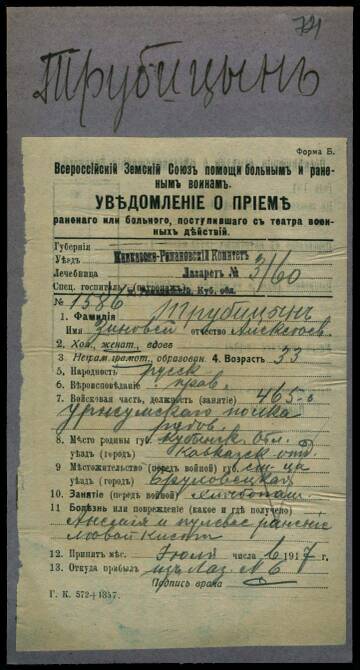 721
Трубицынъ
Форма Б.
Всероссійскій Земскій Союзъ помощи больнымъ и ране-
нымъ воинамъ.
УВѢДОМЛЕНІЕ О ПРІЕМѢ
раненаго или больного, поступившаго съ театра воен-
ныхъ дѣйствій.
Губернія
Уѣздъ Кавказско-Романовскій Комитетъ
Лечебница Лазаретъ № 3/60
Спец. госпиталь (патронажъ) Куб. обл.
№ 1586
1. Фамилія Трубицынъ
Имя Зиновей отчество Алексѣев.
2. Хол., женат., вдовъ
3. Неграм. грамот., образован. 4. Возрастъ 33
5. Народность русск
6. Вѣроисповѣданіе прав.
7. Войсковая часть, должность (занятіе) 465-й
Уржумскаго полка
рядов.
8. Мѣсто родины губ. Кубанск. Обл.
уѣздъ (городъ) Кавказск. отд.
9. Мѣстожительство (передъ войной) губ. ст-ца
уѣздъ (городъ)
10. Занятіе (передъ войной) хлѣбопаш.
11. Болѣзнь или поврежденіе (какое и гдѣ получено)
и пулевое раненіе
лѣвой кисти
12. Принятъ мѣс. Іюля числа 6 1917 г.
13. Откуда прибылъ изъ Лаз. № 6
Подпись врача
Г. К. 572+1857.